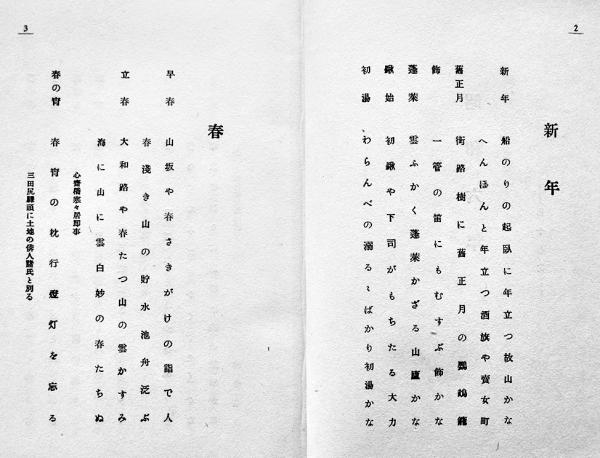 2
新年
新年 船のりの起臥に年立つ故山かな
へんほんと年立つ酒旗や賣女町
舊正月 街路樹に舊正月の鸚鵡籠
飾 一管の笛にもむすぶ飾かな
蓬萊 雲ふかく蓬萊かざる山廬かな
鍬始 初鍬や下司がもちたる大力
初湯 わらんべの溺るゝばかり初湯かな
3
春
早春 山坂や春さきがけの詣で人
春淺き山の貯水池舟泛ぶ
立春 大和路や春たつ山の雲かすみ
海に山に雲白妙の春たちぬ
心齋橋寒々居卽事
春の宵 春宵の枕行燈灯を忘る
三田尻驛頭に土地の俳人諸氏と別る